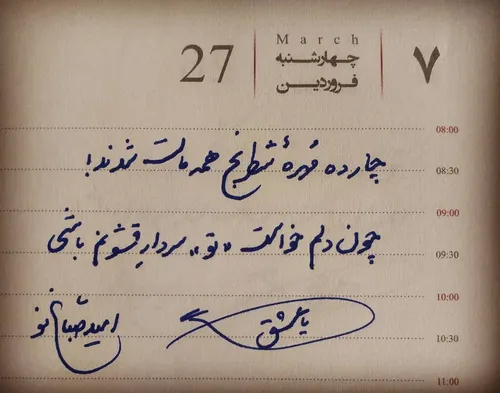 March
27 چهارشنبه ۷
فروردین
08:00
چارده مُهرهٔ شطرنج همه مات شدند!
08:30
09:00
چون دلم خواست «تو» سردارِ قشونم باشی
09:30
10:00
یا عشق
امید صباغ نو
10:30
11:00